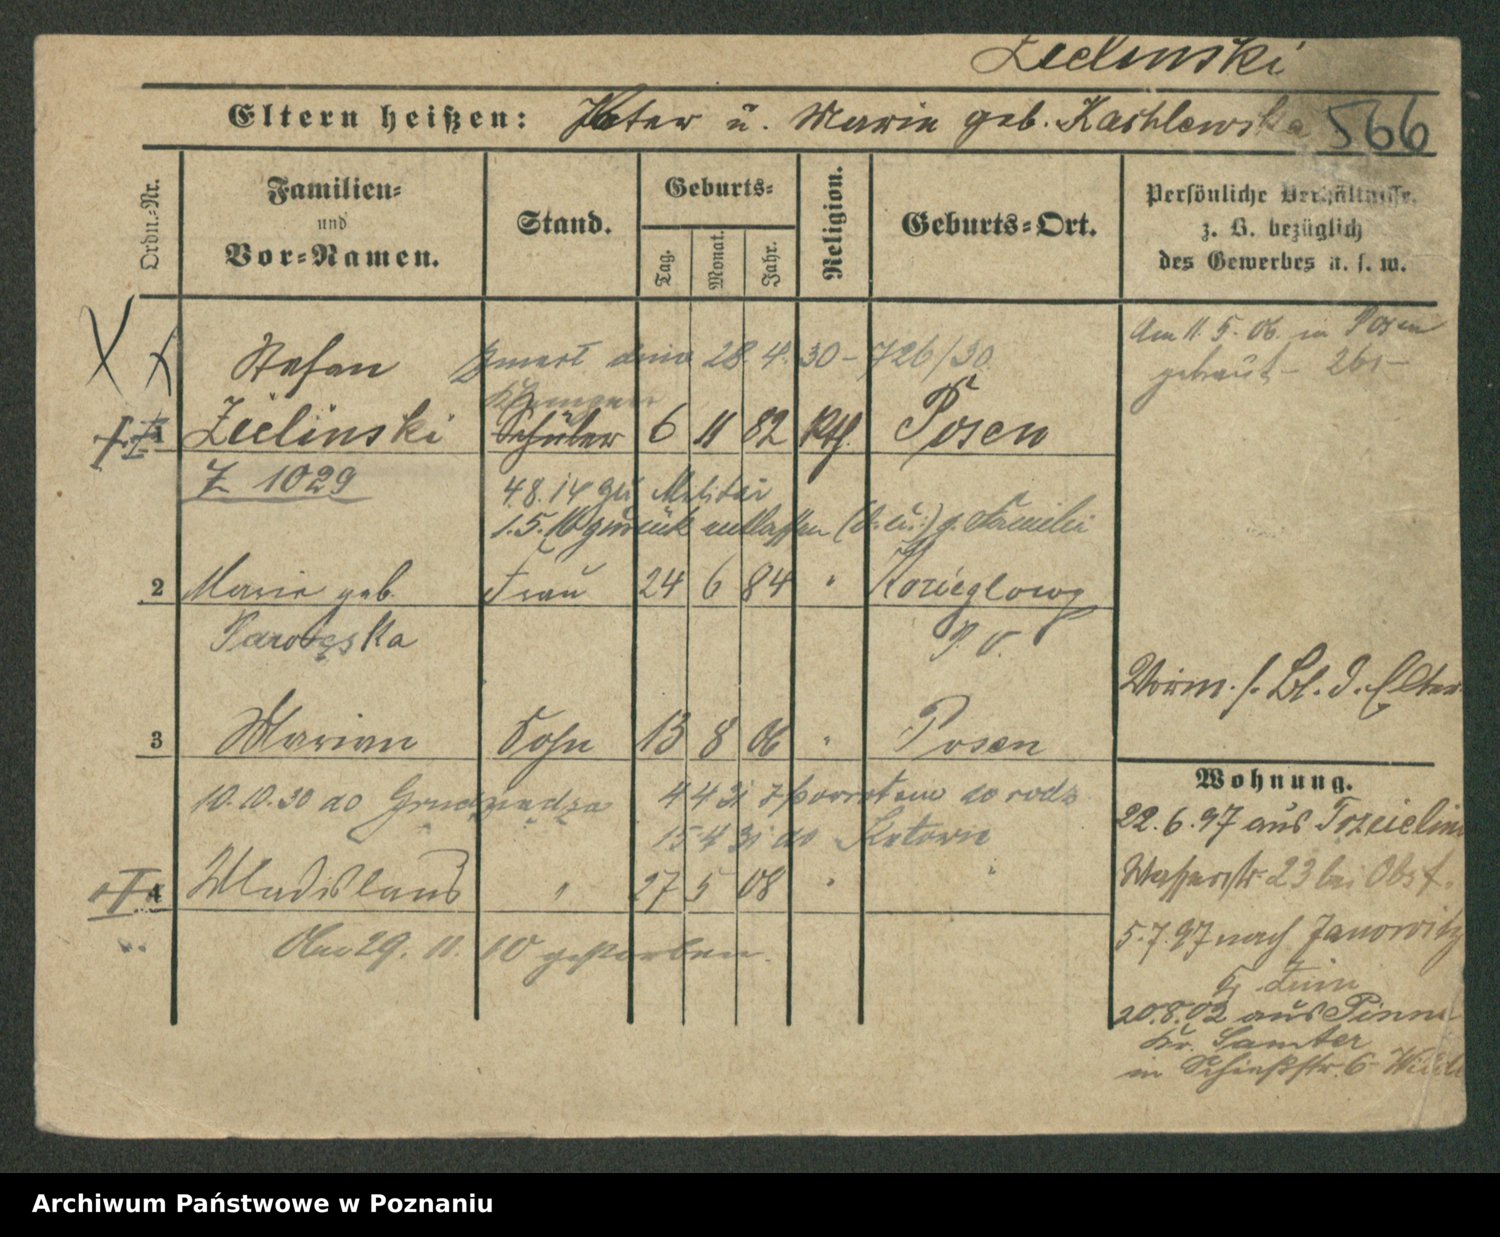 Zielinski
Eltern heißen: Peter u. Marie geb. Kachlewska 566
Ordn.-Nr.
Familien-
und
Vor-Namen.
Stand.
Geburts-
Tag.
Monat.
Jahr.
Religion.
Geburts-Ort.
Persönliche Verhältnisse,
z. B. bezüglich
des Gewerbes u. s. w.
Am 11. 5. 06. in Posen
getraut
Stefan
Zmarł dnia 28. 4. 30 - 726/30.
1 Zielinski Schüler 6 11 82 Kth. Posen
Z 1029
4.8.14 zu Militär
1.5. zurück entlassen z. Familie
2 Marie geb. Frau 24 6 84 " Kozieglowy
P. O.
3 Marian Sohn 13 8 06 " Posen
10.10.30 do Grudziądza 4 4 31 z powrotem do rodz.
15 4 31 do
4 Wladislaus " 27 5 08 " "
Am 29. 11. 10 gestorben.
Verm. s. Bl. d. Elter
Wohnung.
22. 6. 97 aus
Wasserstr. 23 bei
5. 7. 97 nach Janowitz
Kr. Znin
20.8.02 aus Pinne
Kr. Samter
in Schießstr. 6
Archiwum Państwowe w Poznaniu